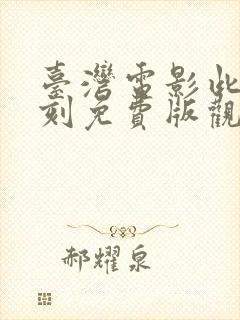 臺灣電影此
刻免費版觀
郝耀泉